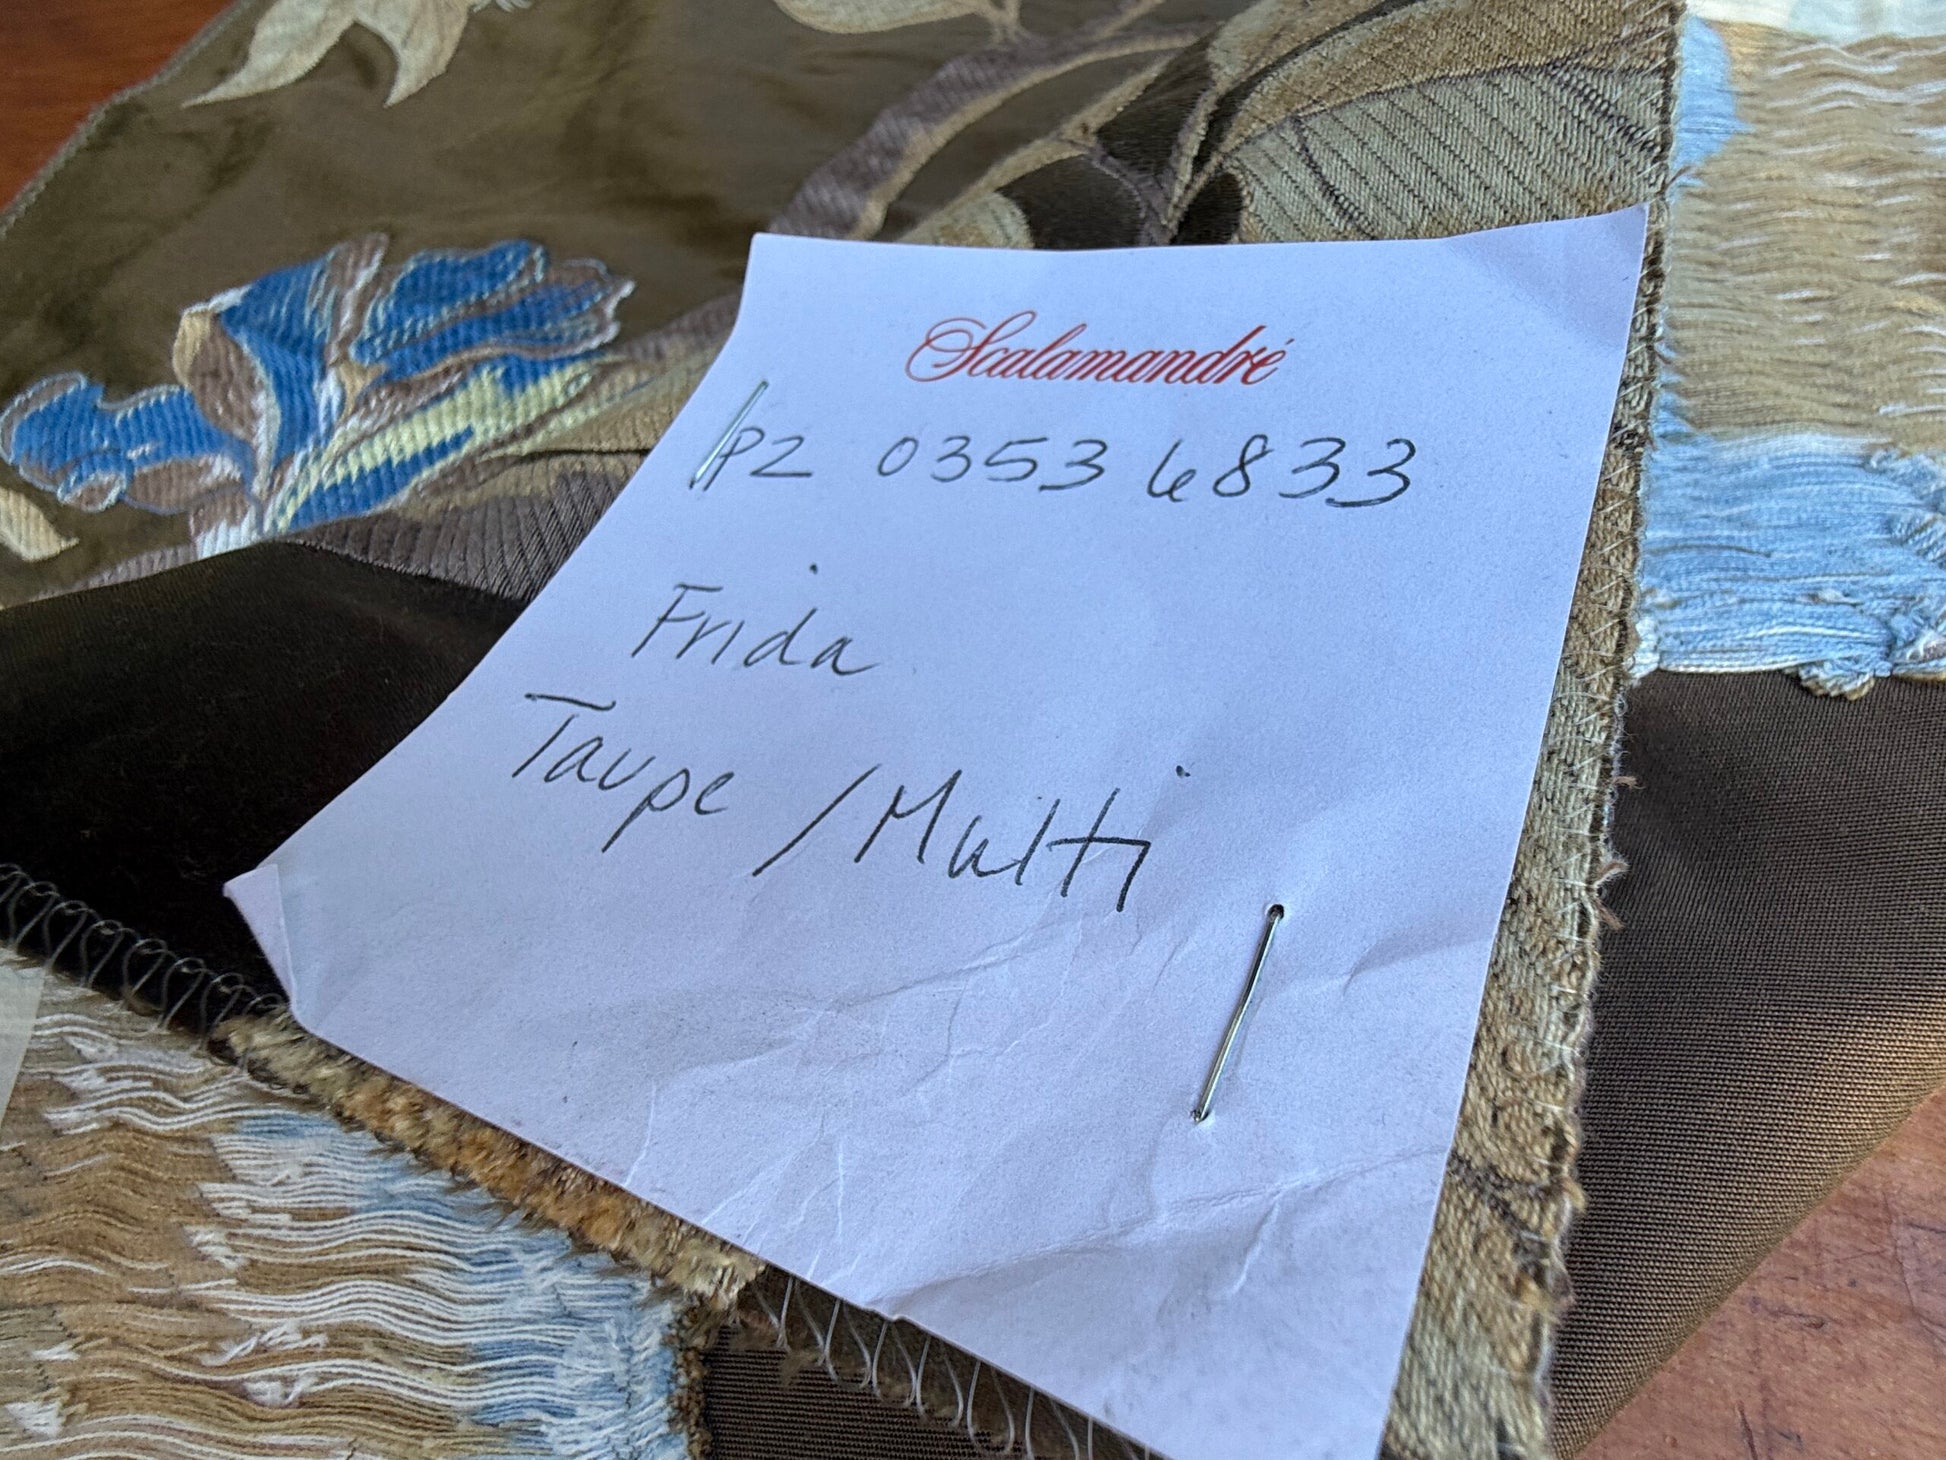 Scalamandré
PZ 0353 6833
Frida
Taupe / Multi